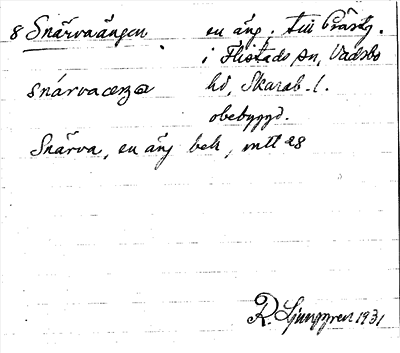 8 Snärvaängen. en äng, till Prästg.
i Flistads sn, Vadsbo
snárvaæŋa hd, Skarab. l.
obebyggd.
Snärva, en äng bek, mtt 28
R. Ljunggren 1931